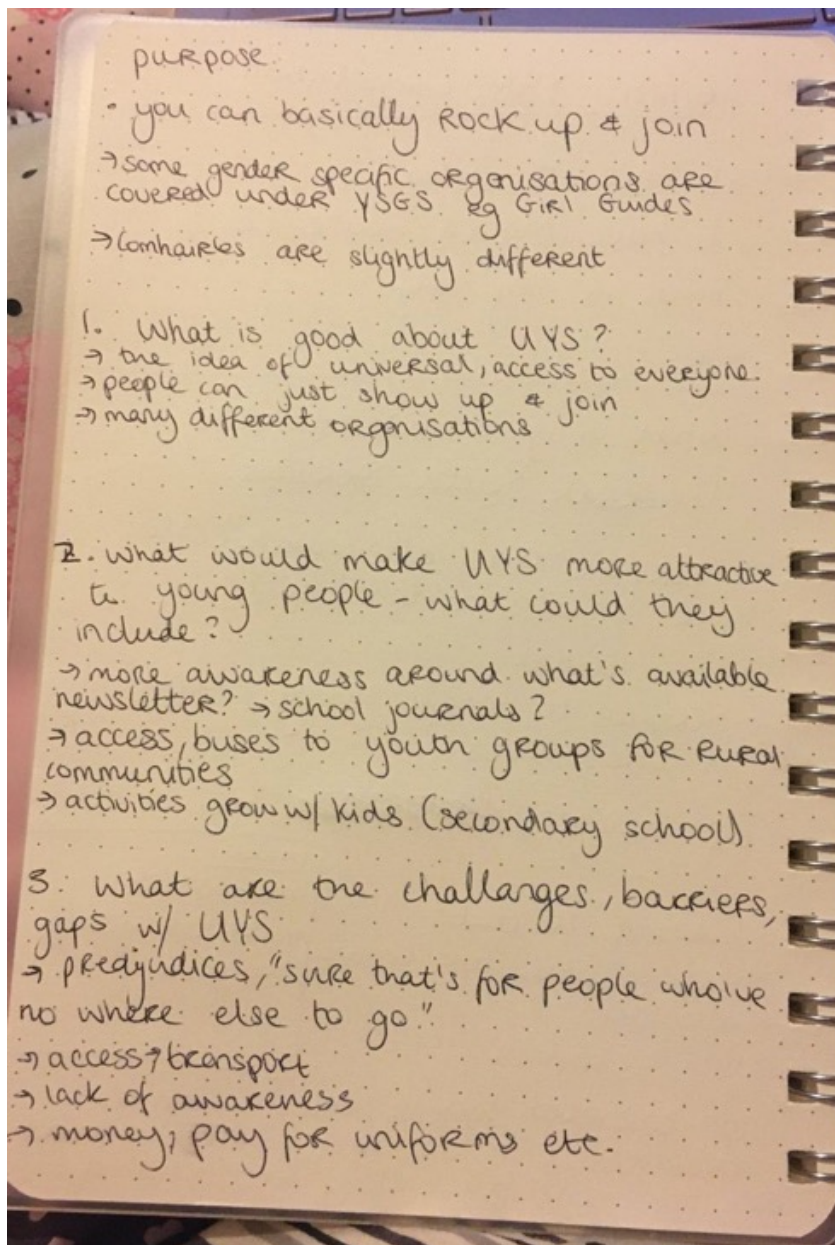 purpose
• you can basically Rock up & join
→ some gender specific organisations are
covered under YSGS eg Girl Guides
→ Comhairles are slightly different
1. What is good about UYS?
→ the idea of universal, access to everyone.
→ people can just show up & join
→ many different organisations
2. What would make UYS more attractive
to young people - what could they
include?
→ more awareness around what's available
newsletter? → school journals?
→ access, buses to youth groups for rural
communities
→ activities grow w/ kids (secondary school)
3. What are the challanges, barriers,
gaps w/ UYS
→ predjudices, "sure that's for people who've
no where else to go"
→ access → transport
→ lack of awareness
→ money, pay for uniforms etc.